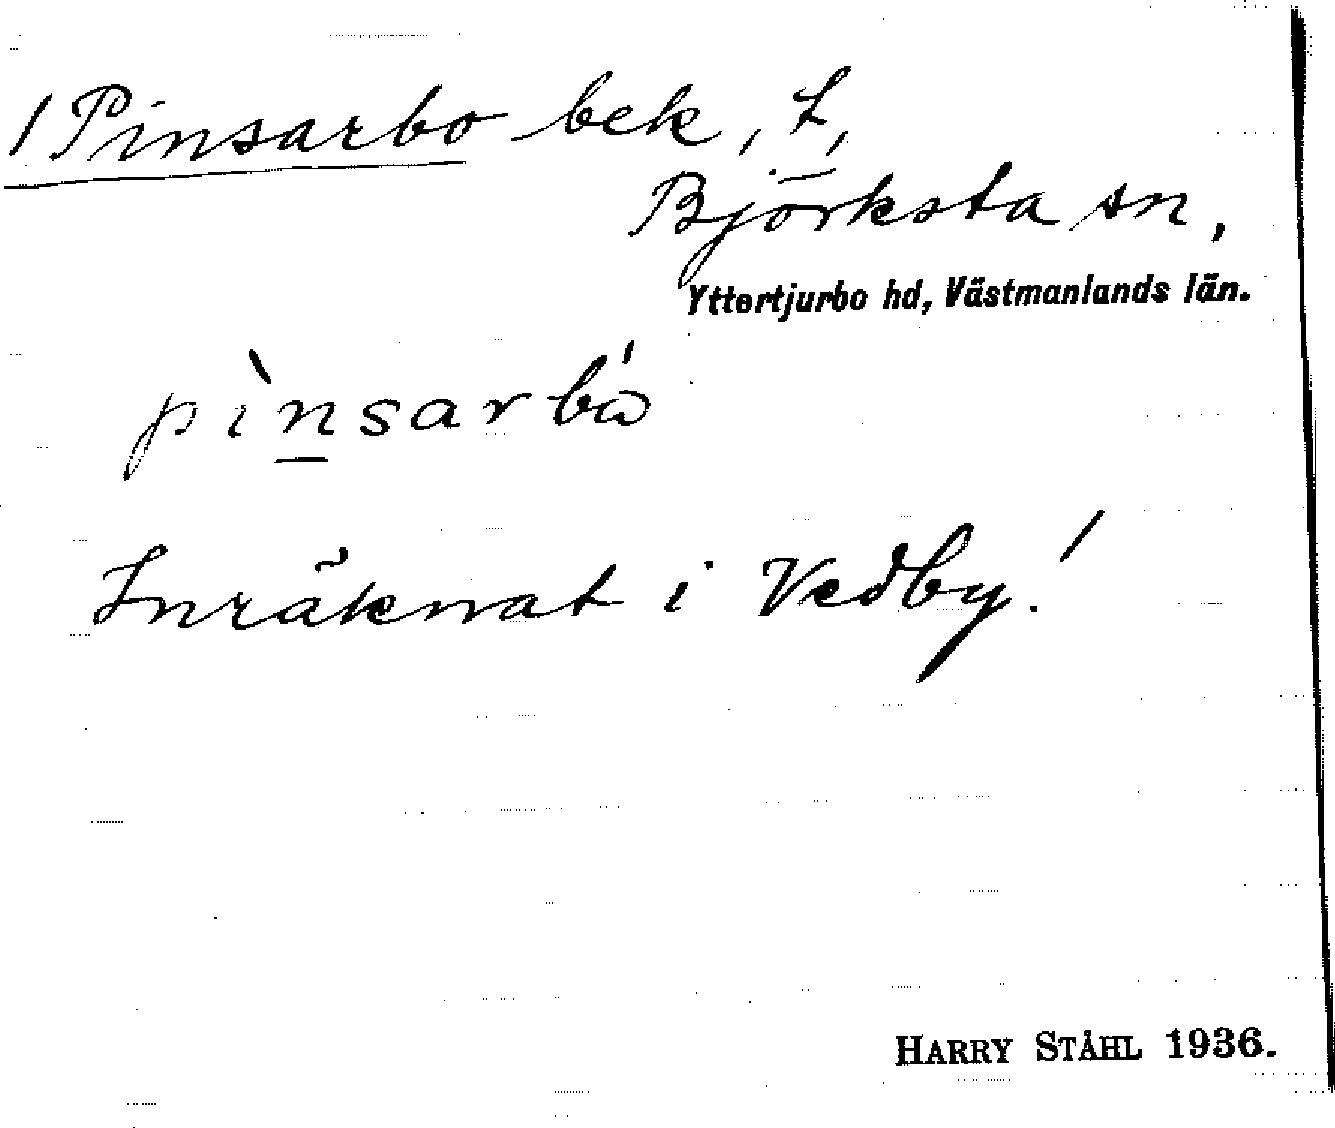 / Pinsarbo bek, L,
Björksta sn,
Yttertjurbo hd, Västmanlands län.
pìnsarbó
Inräknat i Vedby!
HARRY STÅHL 1936.